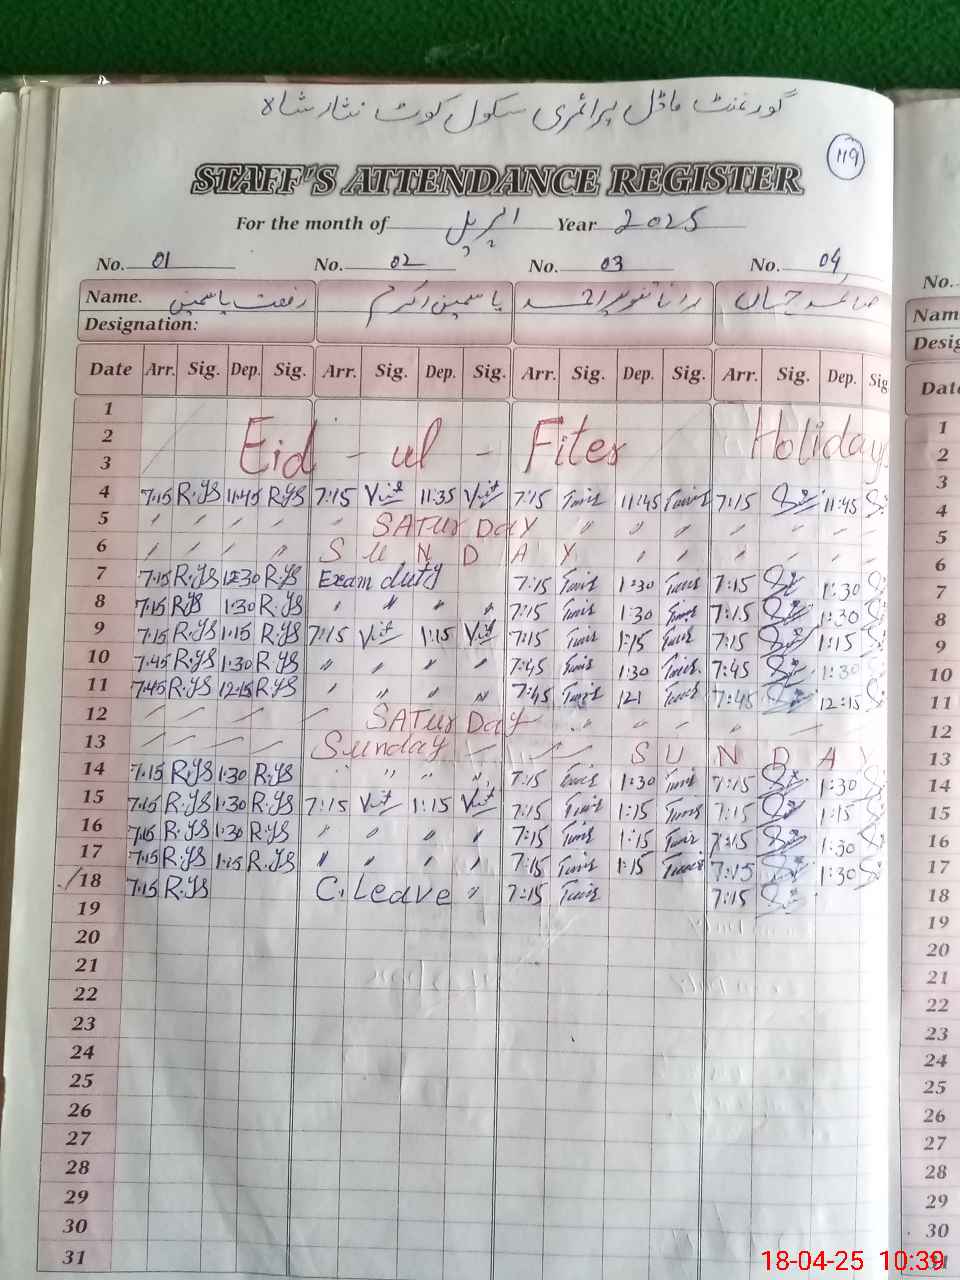 گورنمنٹ ماڈل پرائمری سکول کوٹ نثار شاہ
119
STAFF'S ATTENDANCE REGISTER
For the month of اپریل Year 2025
No. 01 No. 02 No. 03 No. 04 No.
Name. رفعت یاسمین یاسمین اکرم رانا تنویر احمد Nam
Designation: Desig
Date Arr. Sig. Dep. Sig. Arr. Sig. Dep. Sig. Arr. Sig. Dep. Sig. Arr. Sig. Dep. Sig Date
1 1
2 Eid - ul - Fiter Holiday 2
3 3
4 7:15 R.YS 11:45 R.YS 7:15 11:35 7:15 11:45 7:15 11:45 4
5 " " " " " SATURDAY " " " " " 5
6 " " " " SUNDAY " " " " " 6
7 7:15 R.YS 12:30 R.YS Exam duty 7:15 1:30 7:15 1:30 7
8 7:15 RYS 1:30 R.YS " " " " 7:15 1:30 7:15 1:30 8
9 7:15 R.YS 1:15 R.YS 7:15 1:15 7:15 1:15 7:15 1:15 9
10 7:45 R.YS 1:30 R.YS " " " " 7:45 1:30 7:45 1:30 10
11 7:45 R.YS 12:15 R.YS " " " " 7:45 121 7:45 12:15 11
12 SATURDAY " " " " " 12
13 Sunday SUNDAY 13
14 7:15 R.YS 1:30 R.YS " " " " 7:15 1:30 7:15 1:30 14
15 7:15 R.YS 1:30 R.YS 7:15 1:15 7:15 1:15 7:15 1:15 15
16 7:15 R.YS 1:30 R.YS " " " " 7:15 1:15 7:15 1:30 16
17 7:15 R.YS 1:15 R.YS " " " " 7:15 1:15 7:15 1:30 17
18 7:15 R.YS C. Leave " 7:15 7:15 18
19 19
20 20
21 21
22 22
23 23
24 24
25 25
26 26
27 27
28 28
29 29
30 30
31
18-04-25 10:39